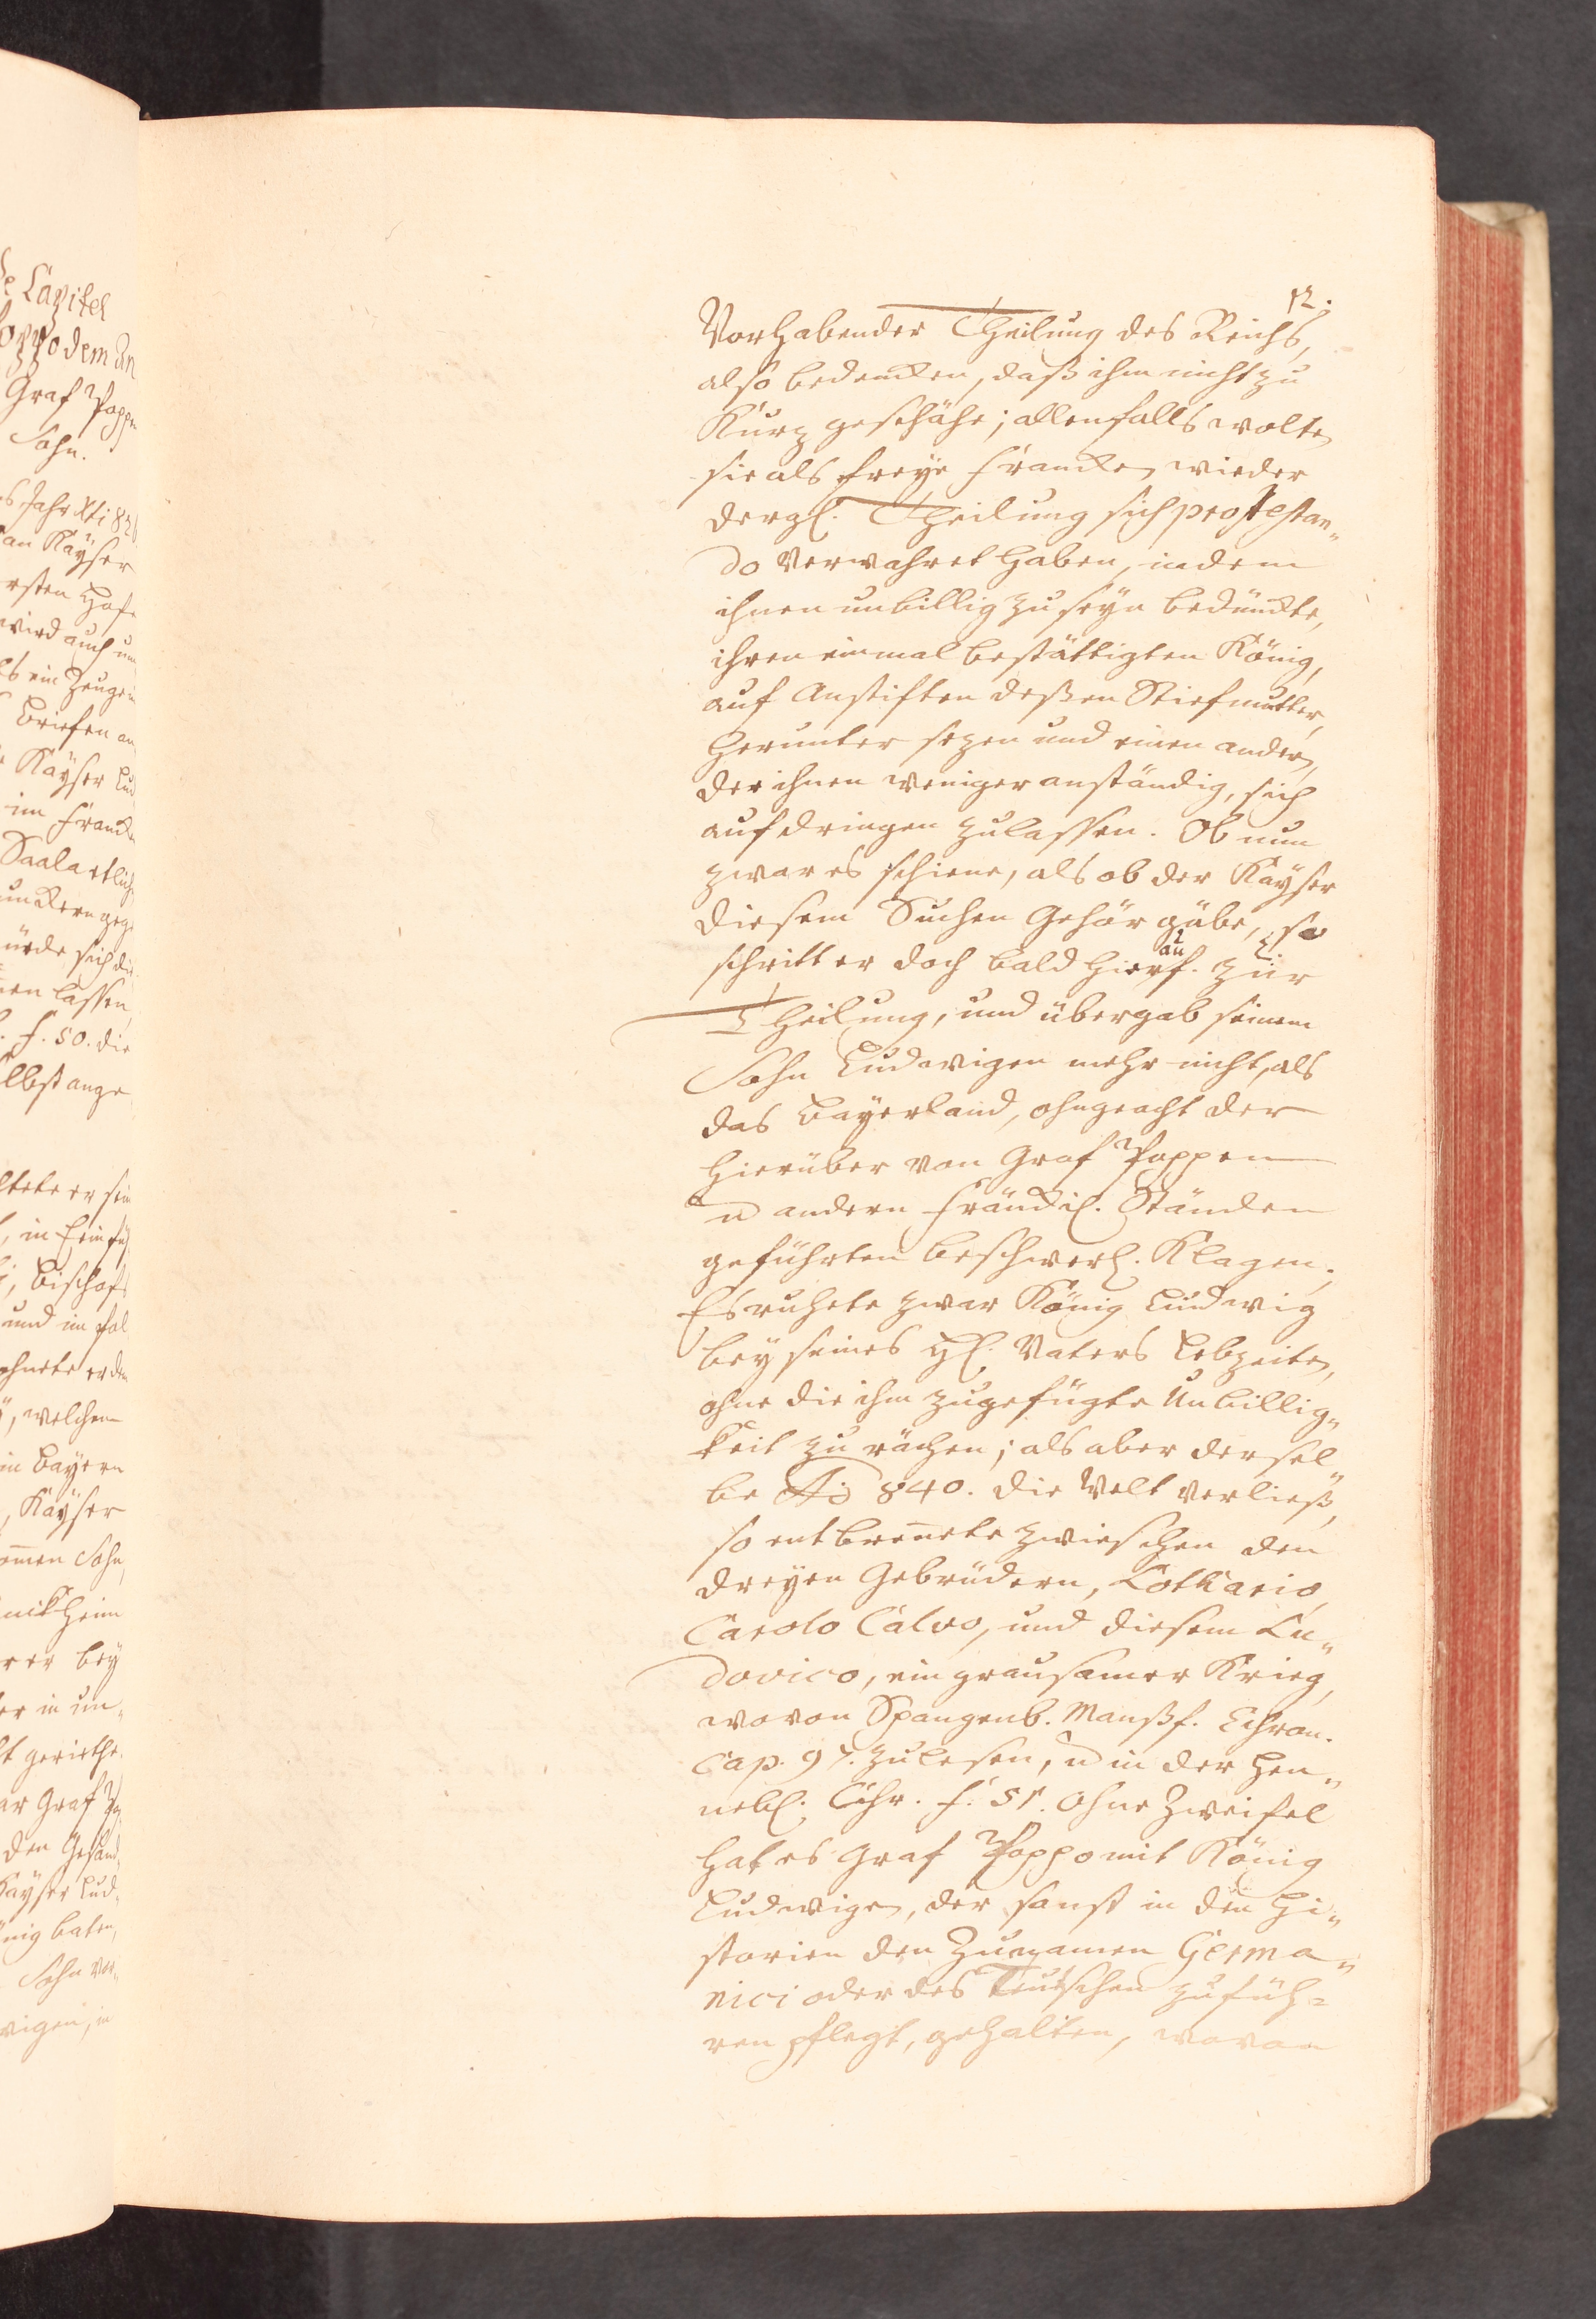 12.
Vorhabender Theilung des Reichs,
also bedencken, daß ihm nicht zu
Kurz geschähe; allenfalls wolten
sie als freye Francken wieder
dergl. Theilung sich protestan„
do verwahret haben, indem
ihnen unbillig zu seyn bedünckte,
ihren einmal bestättigten König,
auf Anstiften deßen Stiefmutter,
herunter sezen und einen andern,
der ihnen weniger anständig, sich
aufdringen zulassen. Ob nun
zwar es schiene, als ob der Kayser
diesem Suchen Gehör gäbe, so
schritt er doch bald hierauf. zur
Theilung, und übergab seinem
Sohn Ludwigen mehr nicht, als
das Bayerland, ohngeacht der
hierüber von Graf Poppen
u andern Fränckl. Ständen
geführten beschwerl. Klagen.
Es ruhete zwar König Ludwig
bey seines H. Vaters Lebzeiten,
ohne die ihm zugefügte Unbillig„
keit zu rächen; als aber dersel„
be Ao 840. die Welt verließ,
so entbrennete zwieschen den
dreyen Gebrüdern, Lothario,
Carolo Calvo, und diesem Lu„
dovico, ein grausamer Krieg,
wovon Spangenb. Manßf. Chron.
Cap. 97. zulesen, u in der Hen„
nebl. Chr. f. 51. Ohne Zweifel
hat es Graf Poppo mit König
Ludwigen, der sonst in den Hi„
storien den Zunamen Germa„
nici oder des Teutschen zufüh=
ren pflegt, gehalten, wovon